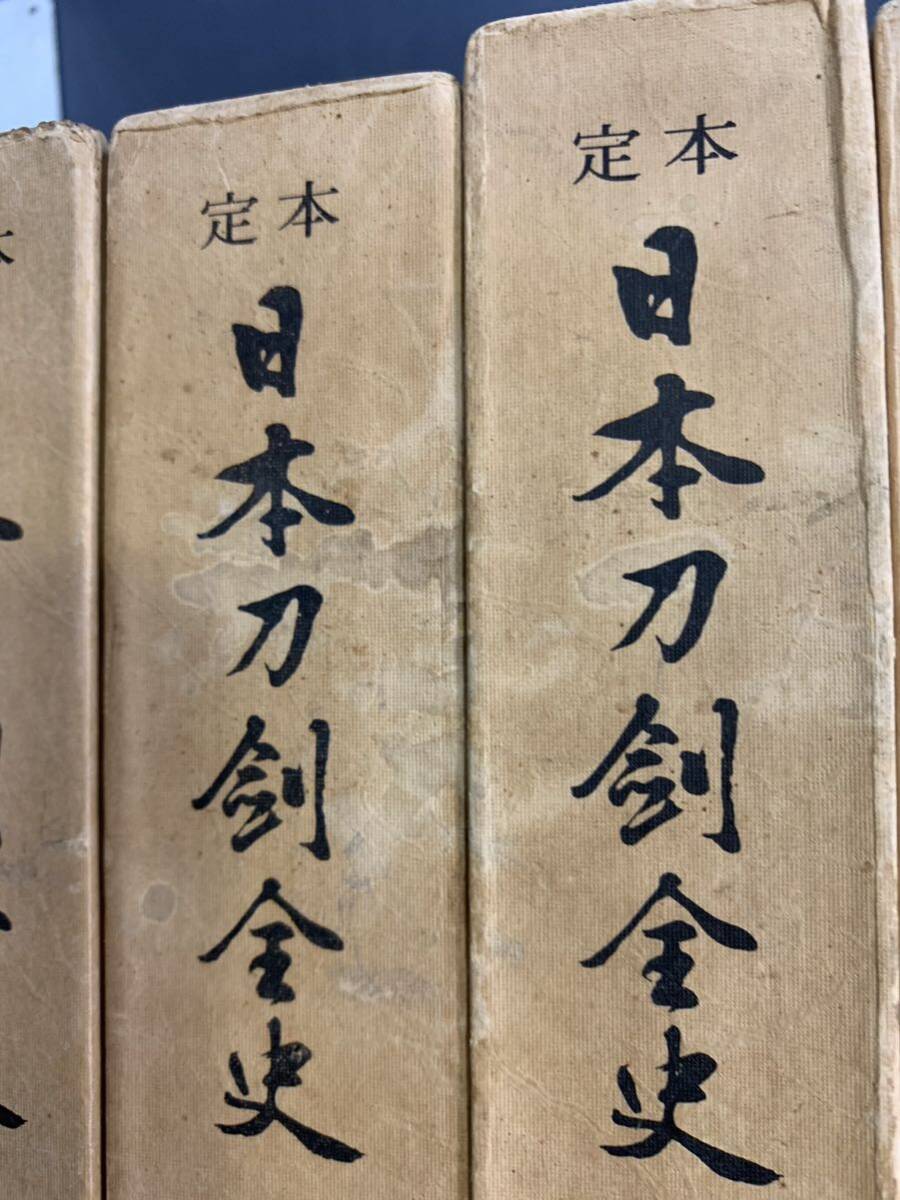 定本
日本刀剣全史
定本
日本刀剣全史